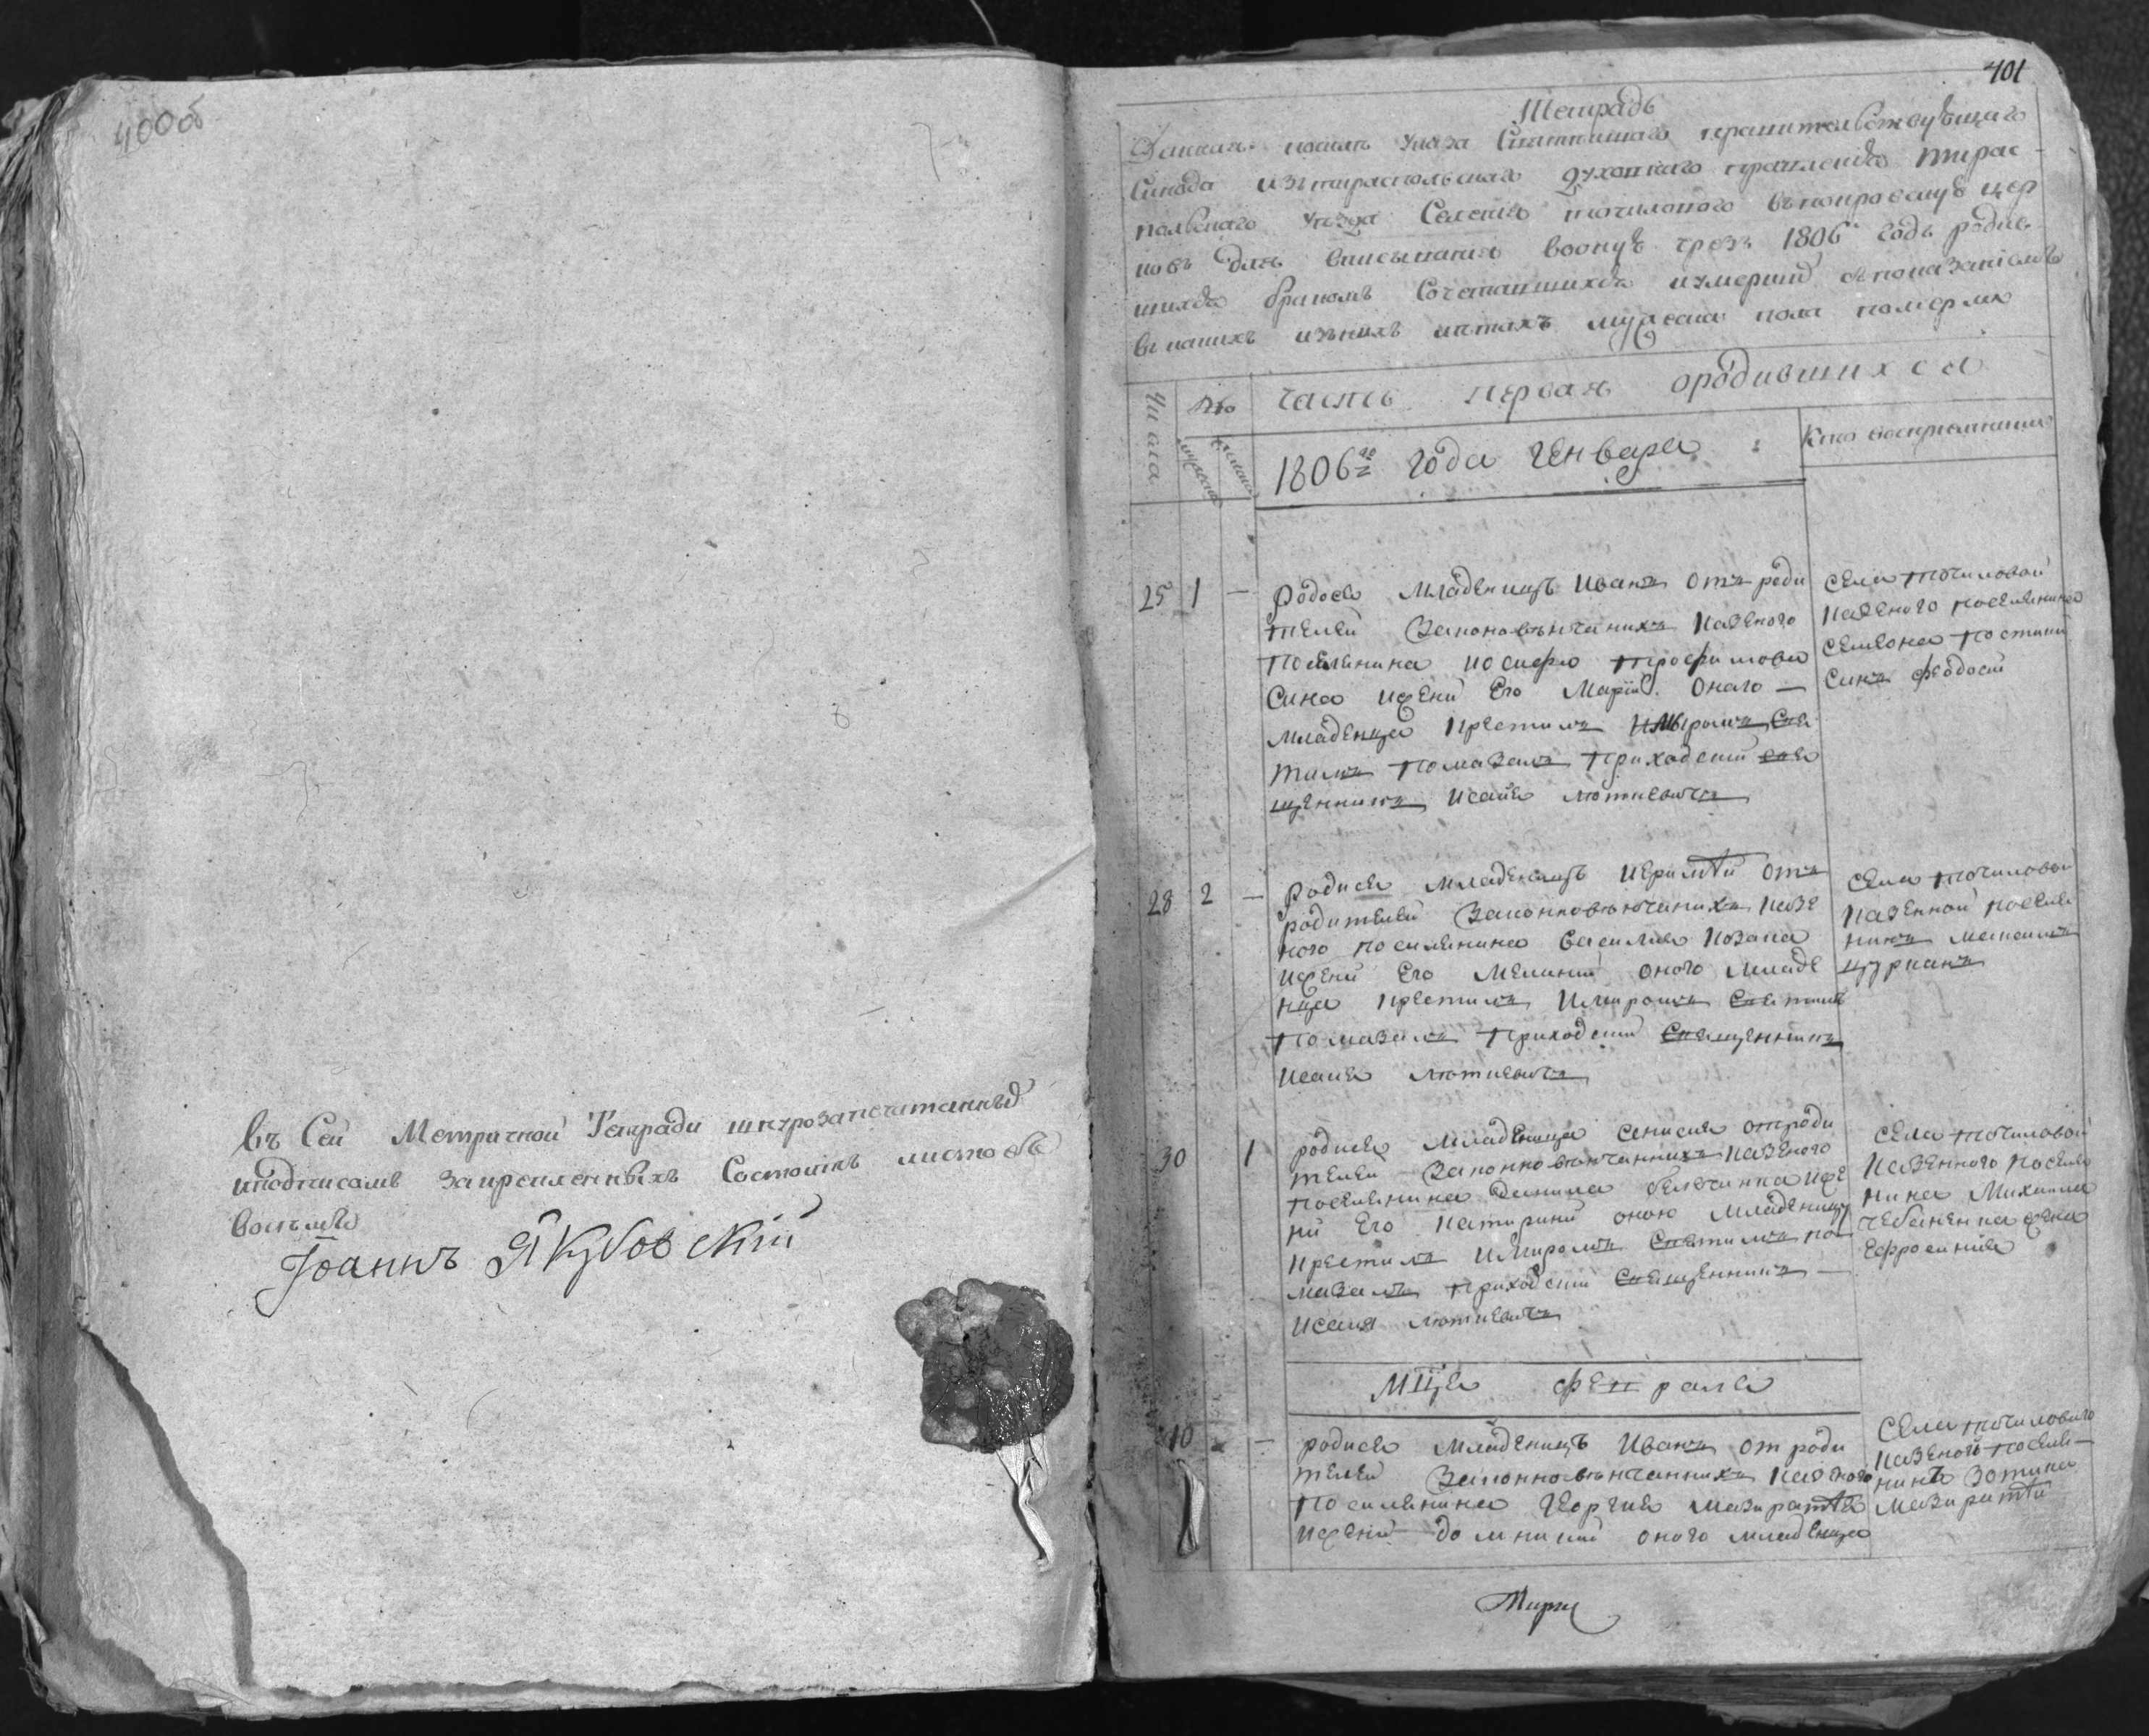 400об
въ Сей Метричной Тетради шнурозапечатанныд
иподписомъ закрепленныхъ Состоитъ листовъ
восъмъ
Іоаннъ Якубовскій
401
Тетрадь
Данная посилѣ указа Святейшаго правителствующаго
Синода изътираспольскаго духовнаго правления тирас
полского уезда Селения точилового въпокровскую цер
ковъ для вписывания вооную чрезъ 1806 годъ родив
шихся бракомъ Сочетавшихся иумершид съпоказаниемъ
вкакихъ изънихъ летахъ мужеска пола померли
Числа
мужеска
женска
частъ первая ородившихся
1806го года Генваря
Кто восприемники
25 1 — Родося младенецъ Иванъ отъ роди
телей Законовѣнчанихъ казеного
поселянина Иосифа Трофимова
сина ижени Его Маріи. Оного —
младенца крестилъ имѵромъ Свя
тимъ помазалъ приходский свя
щенникъ Исаия лютневичъ
села точиловой
казеного поселянина
семиона постики
синъ феодосій
28 2 — Родися младенецъ Иеримѣй отъ
родителей Законновѣнчанихъ казе
ного поселянина василия козака
ижени Его Меланий оного младе
нца крестилъ Имиромъ святимъ
помазалъ приходский священникъ
Исаия лютневичъ
села точиловой
казенной поселя
нинъ маноилъ
цурканъ
30 1 родися младеница сенисия отроди
телей Законновѣнчаннихъ казеного
поселянина данила белочинка иже
ни Его катирини оною младеницу
крестилъ Имиромъ святимъ по
мазалъ приходский священникъ —
исаия лютневичъ
села точиловой
казенного поселя
нина Михаила
чебаненка жена
Ефросиния
Мца февраля
10 — родися младенецъ Иванъ от роди
телей Законновѣнчаннихъ казеного
поселянина Георгия мазиратѣя
ижени домникий оного младенца
села точилового
казеной посели—
нинъ зотика
мазиратѣй